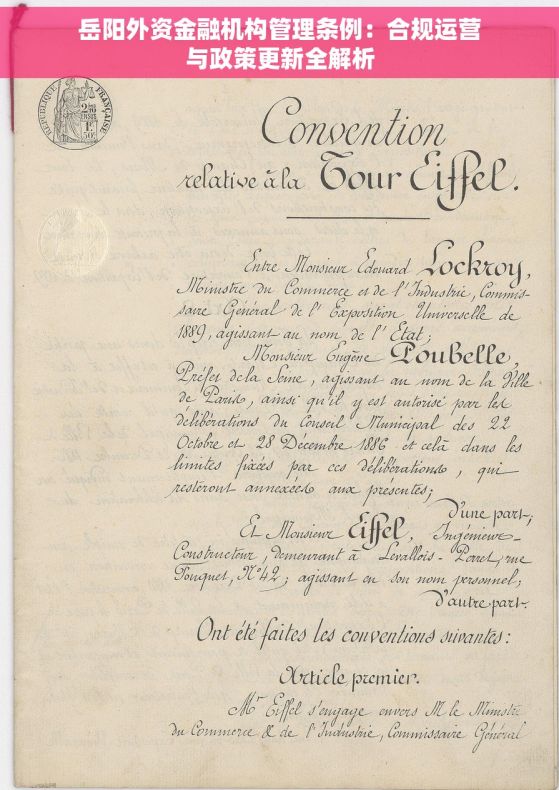 岳阳外资金融机构管理条例：合规运营
与政策更新全解析
RÉPUBLIQUE FRANÇAISE
Convention
relative à la Tour Eiffel.
Entre Monsieur Edouard Lockroy,
Ministre du Commerce et de l'Industrie, Commis-
saire Général de l'Exposition Universelle de
1889, agissant au nom de l'Etat;
Monsieur Eugène Poubelle,
Préfet de la Seine, agissant au nom de la Ville
de Paris, ainsi qu'il y est autorisé par les
délibérations du Conseil Municipal des 22
Octobre et 28 Décembre 1886 et celà dans les
limites fixées par ces délibérations, qui
resteront annexées aux présentes;
d'une part;
Et Monsieur Eiffel, Ingénieur-
Constructeur, demeurant à Levallois-Perret, rue
Fouquet, N° 42; agissant en son nom personnel;
d'autre part.
Ont été faites les conventions suivantes:
Article premier.
Mr Eiffel s'engage envers M le Ministre
du Commerce & de l'Industrie, Commissaire Général